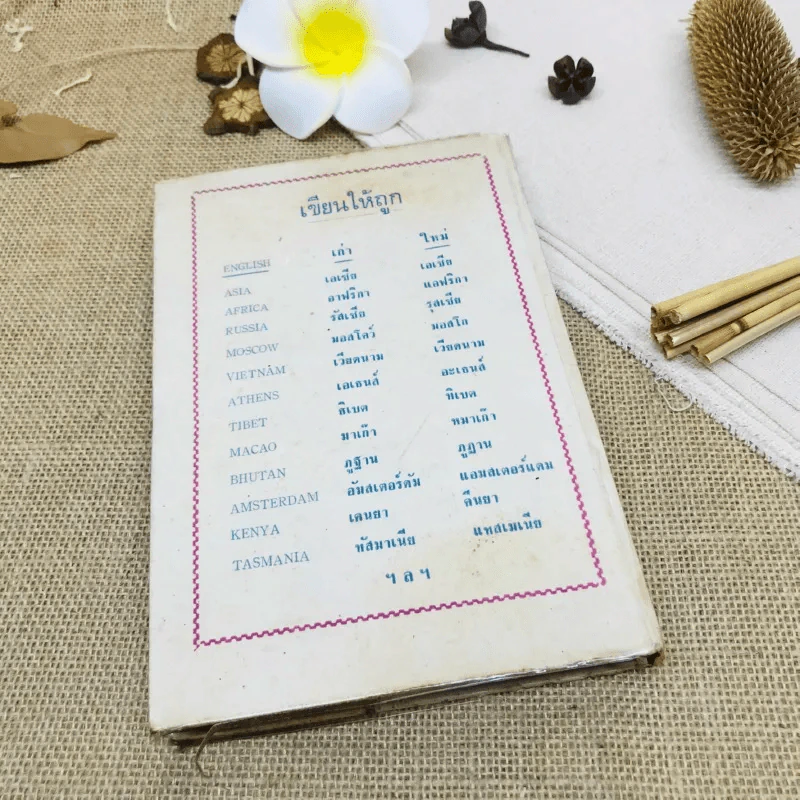 เขียนให้ถูก
ENGLISH เก่า ใหม่
ASIA เอเซีย เอเชีย
AFRICA อาฟริกา แอฟริกา
RUSSIA รัสเซีย รุสเซีย
MOSCOW มอสโคว์ มอสโก
VIETNAM เวียตนาม เวียดนาม
ATHENS เอเธนส์ อะเธนส์
TIBET ธิเบต ทิเบต
MACAO มาเก๊า หมาเก๊า
BHUTAN ภูฐาน ภูฏาน
AMSTERDAM อัมสเตอร์ดัม แอมสเตอร์แดม
KENYA เคนยา คีนยา
TASMANIA ทัสมาเนีย แทสเมเนีย
ฯ ล ฯ